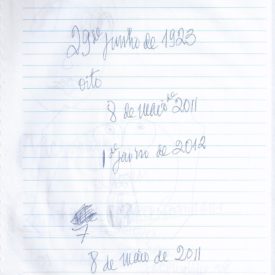 29 de junho de 1923
oito
8 de maio de 2011
1 de janeiro de 2012
7
8 de maio de 2011